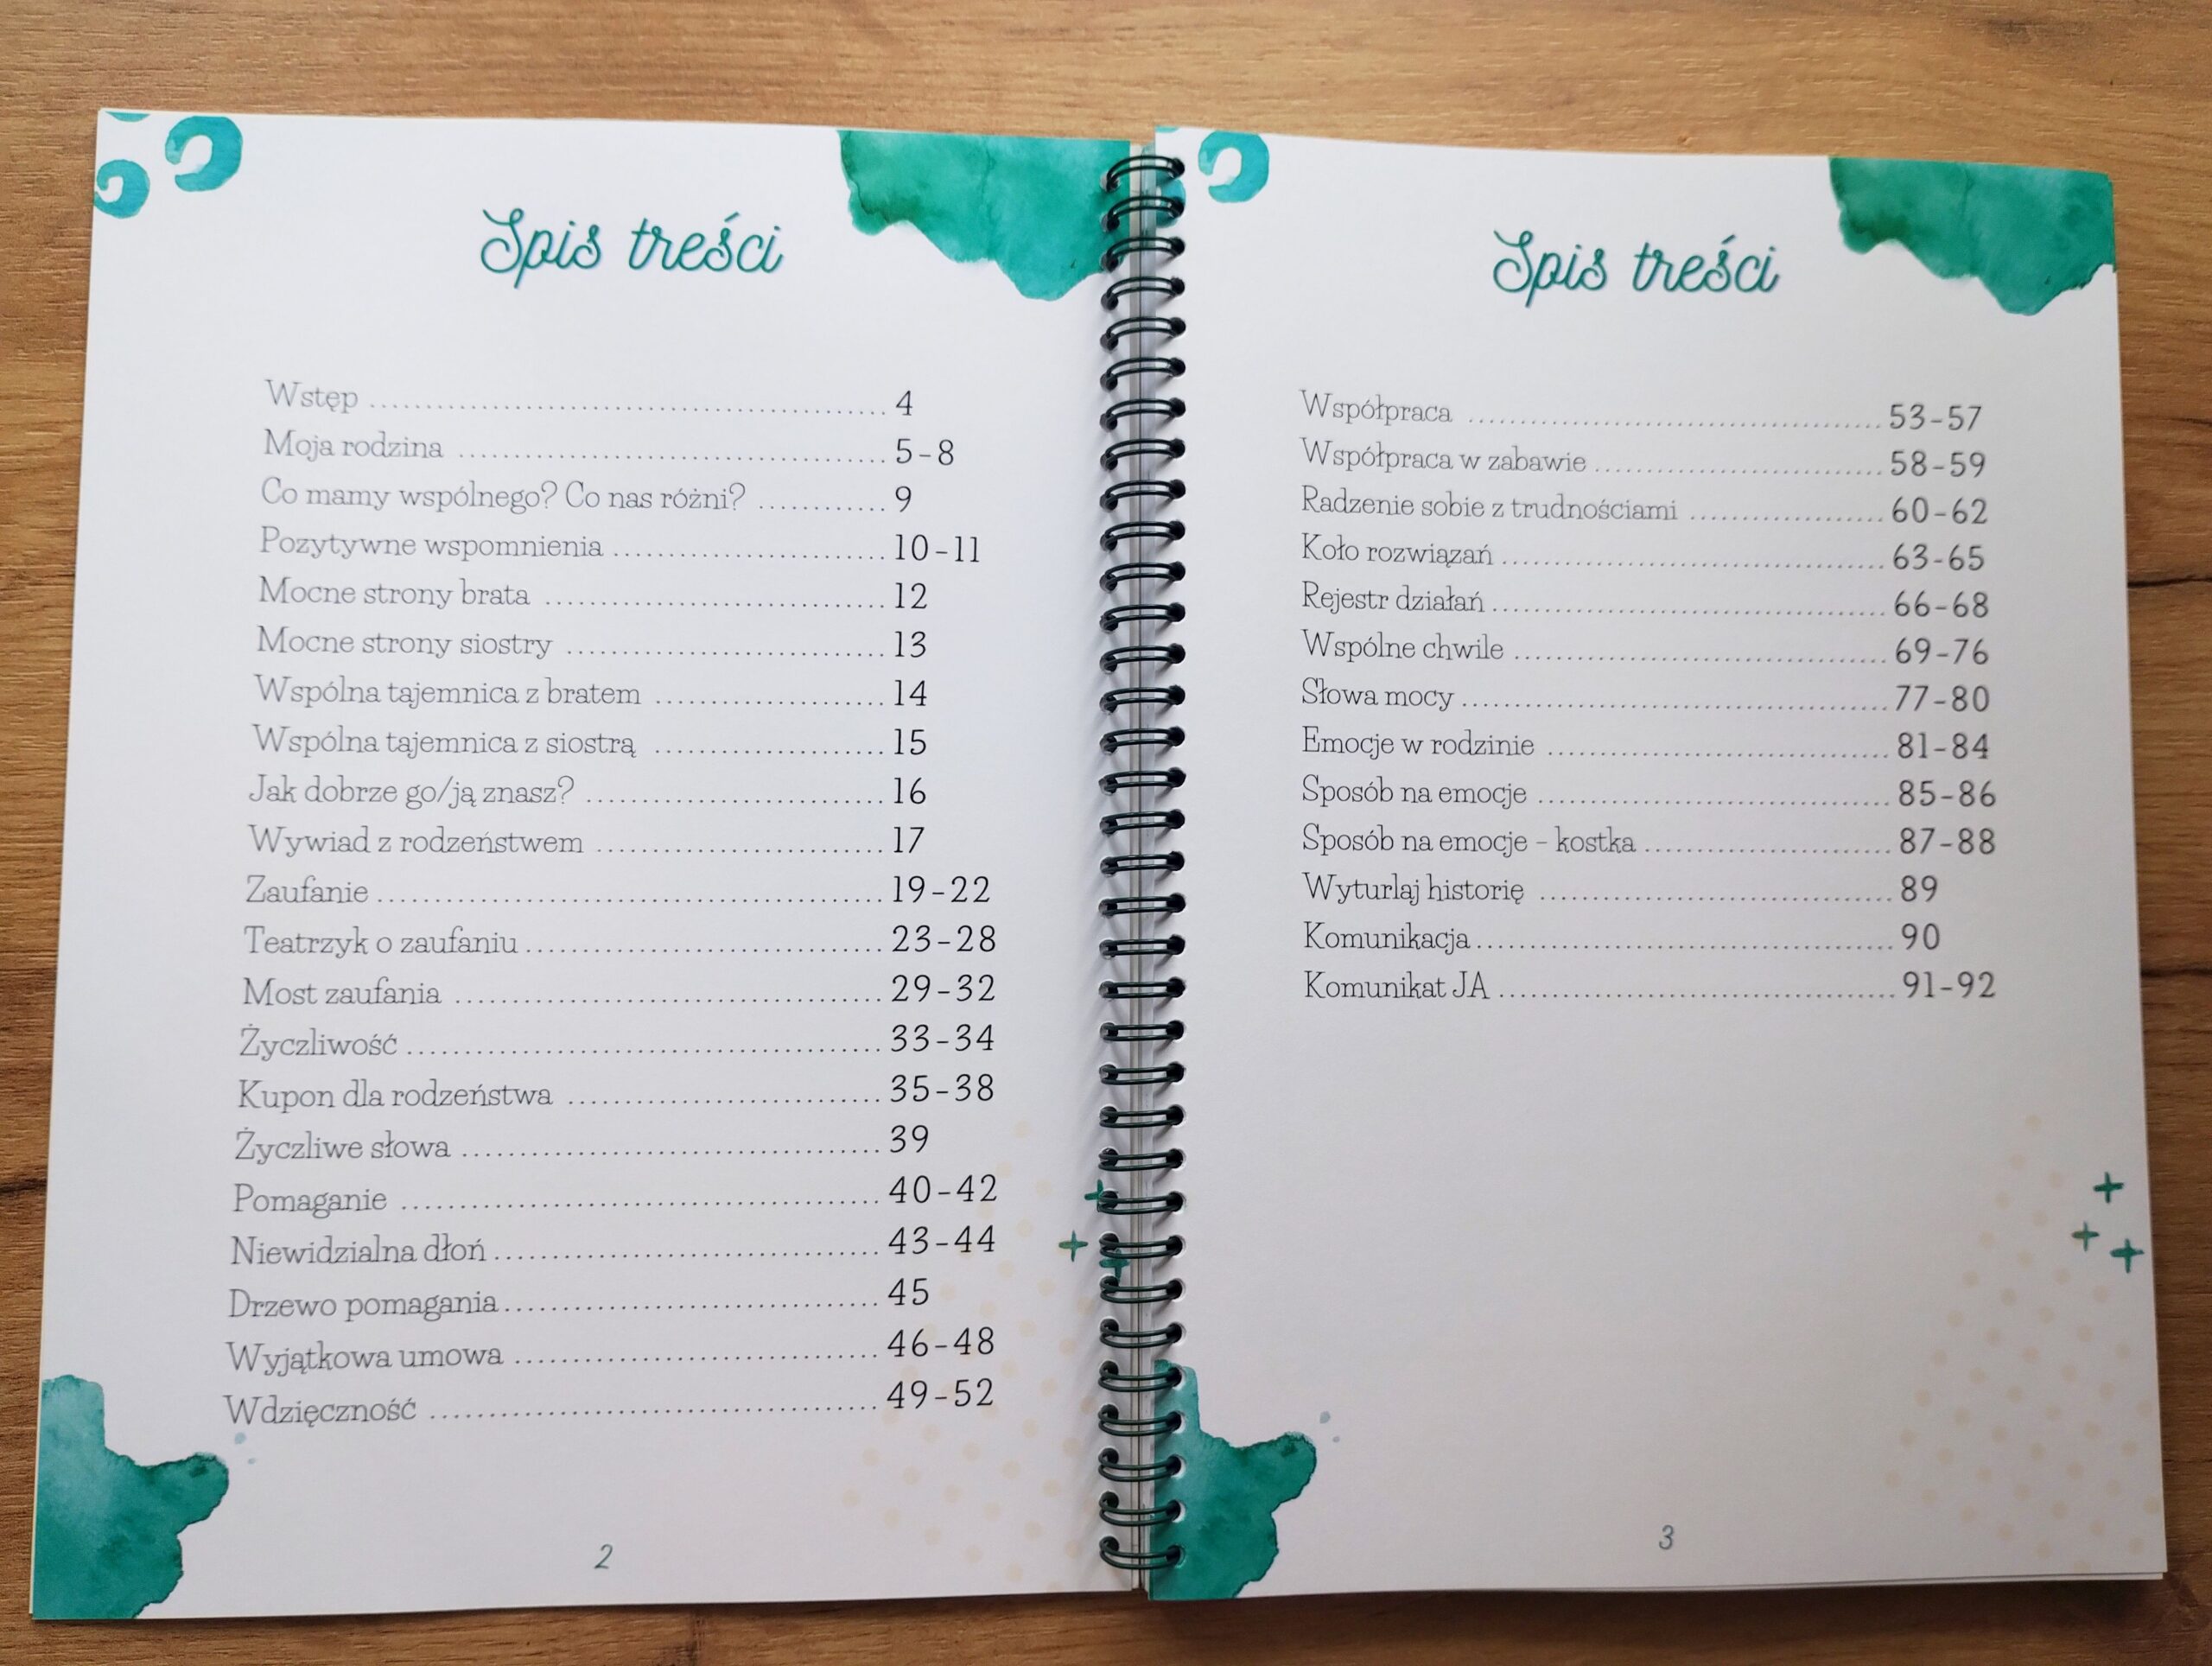 Spis treści
Wstęp ........ 4
Moja rodzina ........ 5-8
Co mamy wspólnego? Co nas różni? ........ 9
Pozytywne wspomnienia ........ 10-11
Mocne strony brata ........ 12
Mocne strony siostry ........ 13
Wspólna tajemnica z bratem ........ 14
Wspólna tajemnica z siostrą ........ 15
Jak dobrze go/ją znasz? ........ 16
Wywiad z rodzeństwem ........ 17
Zaufanie ........ 19-22
Teatrzyk o zaufaniu ........ 23-28
Most zaufania ........ 29-32
Życzliwość ........ 33-34
Kupon dla rodzeństwa ........ 35-38
Życzliwe słowa ........ 39
Pomaganie ........ 40-42
Niewidzialna dłoń ........ 43-44
Drzewo pomagania ........ 45
Wyjątkowa umowa ........ 46-48
Wdzięczność ........ 49-52
2
Spis treści
Współpraca ........ 53-57
Współpraca w zabawie ........ 58-59
Radzenie sobie z trudnościami ........ 60-62
Koło rozwiązań ........ 63-65
Rejestr działań ........ 66-68
Wspólne chwile ........ 69-76
Słowa mocy ........ 77-80
Emocje w rodzinie ........ 81-84
Sposób na emocje ........ 85-86
Sposób na emocje - kostka ........ 87-88
Wyturlaj historię ........ 89
Komunikacja ........ 90
Komunikat JA ........ 91-92
3